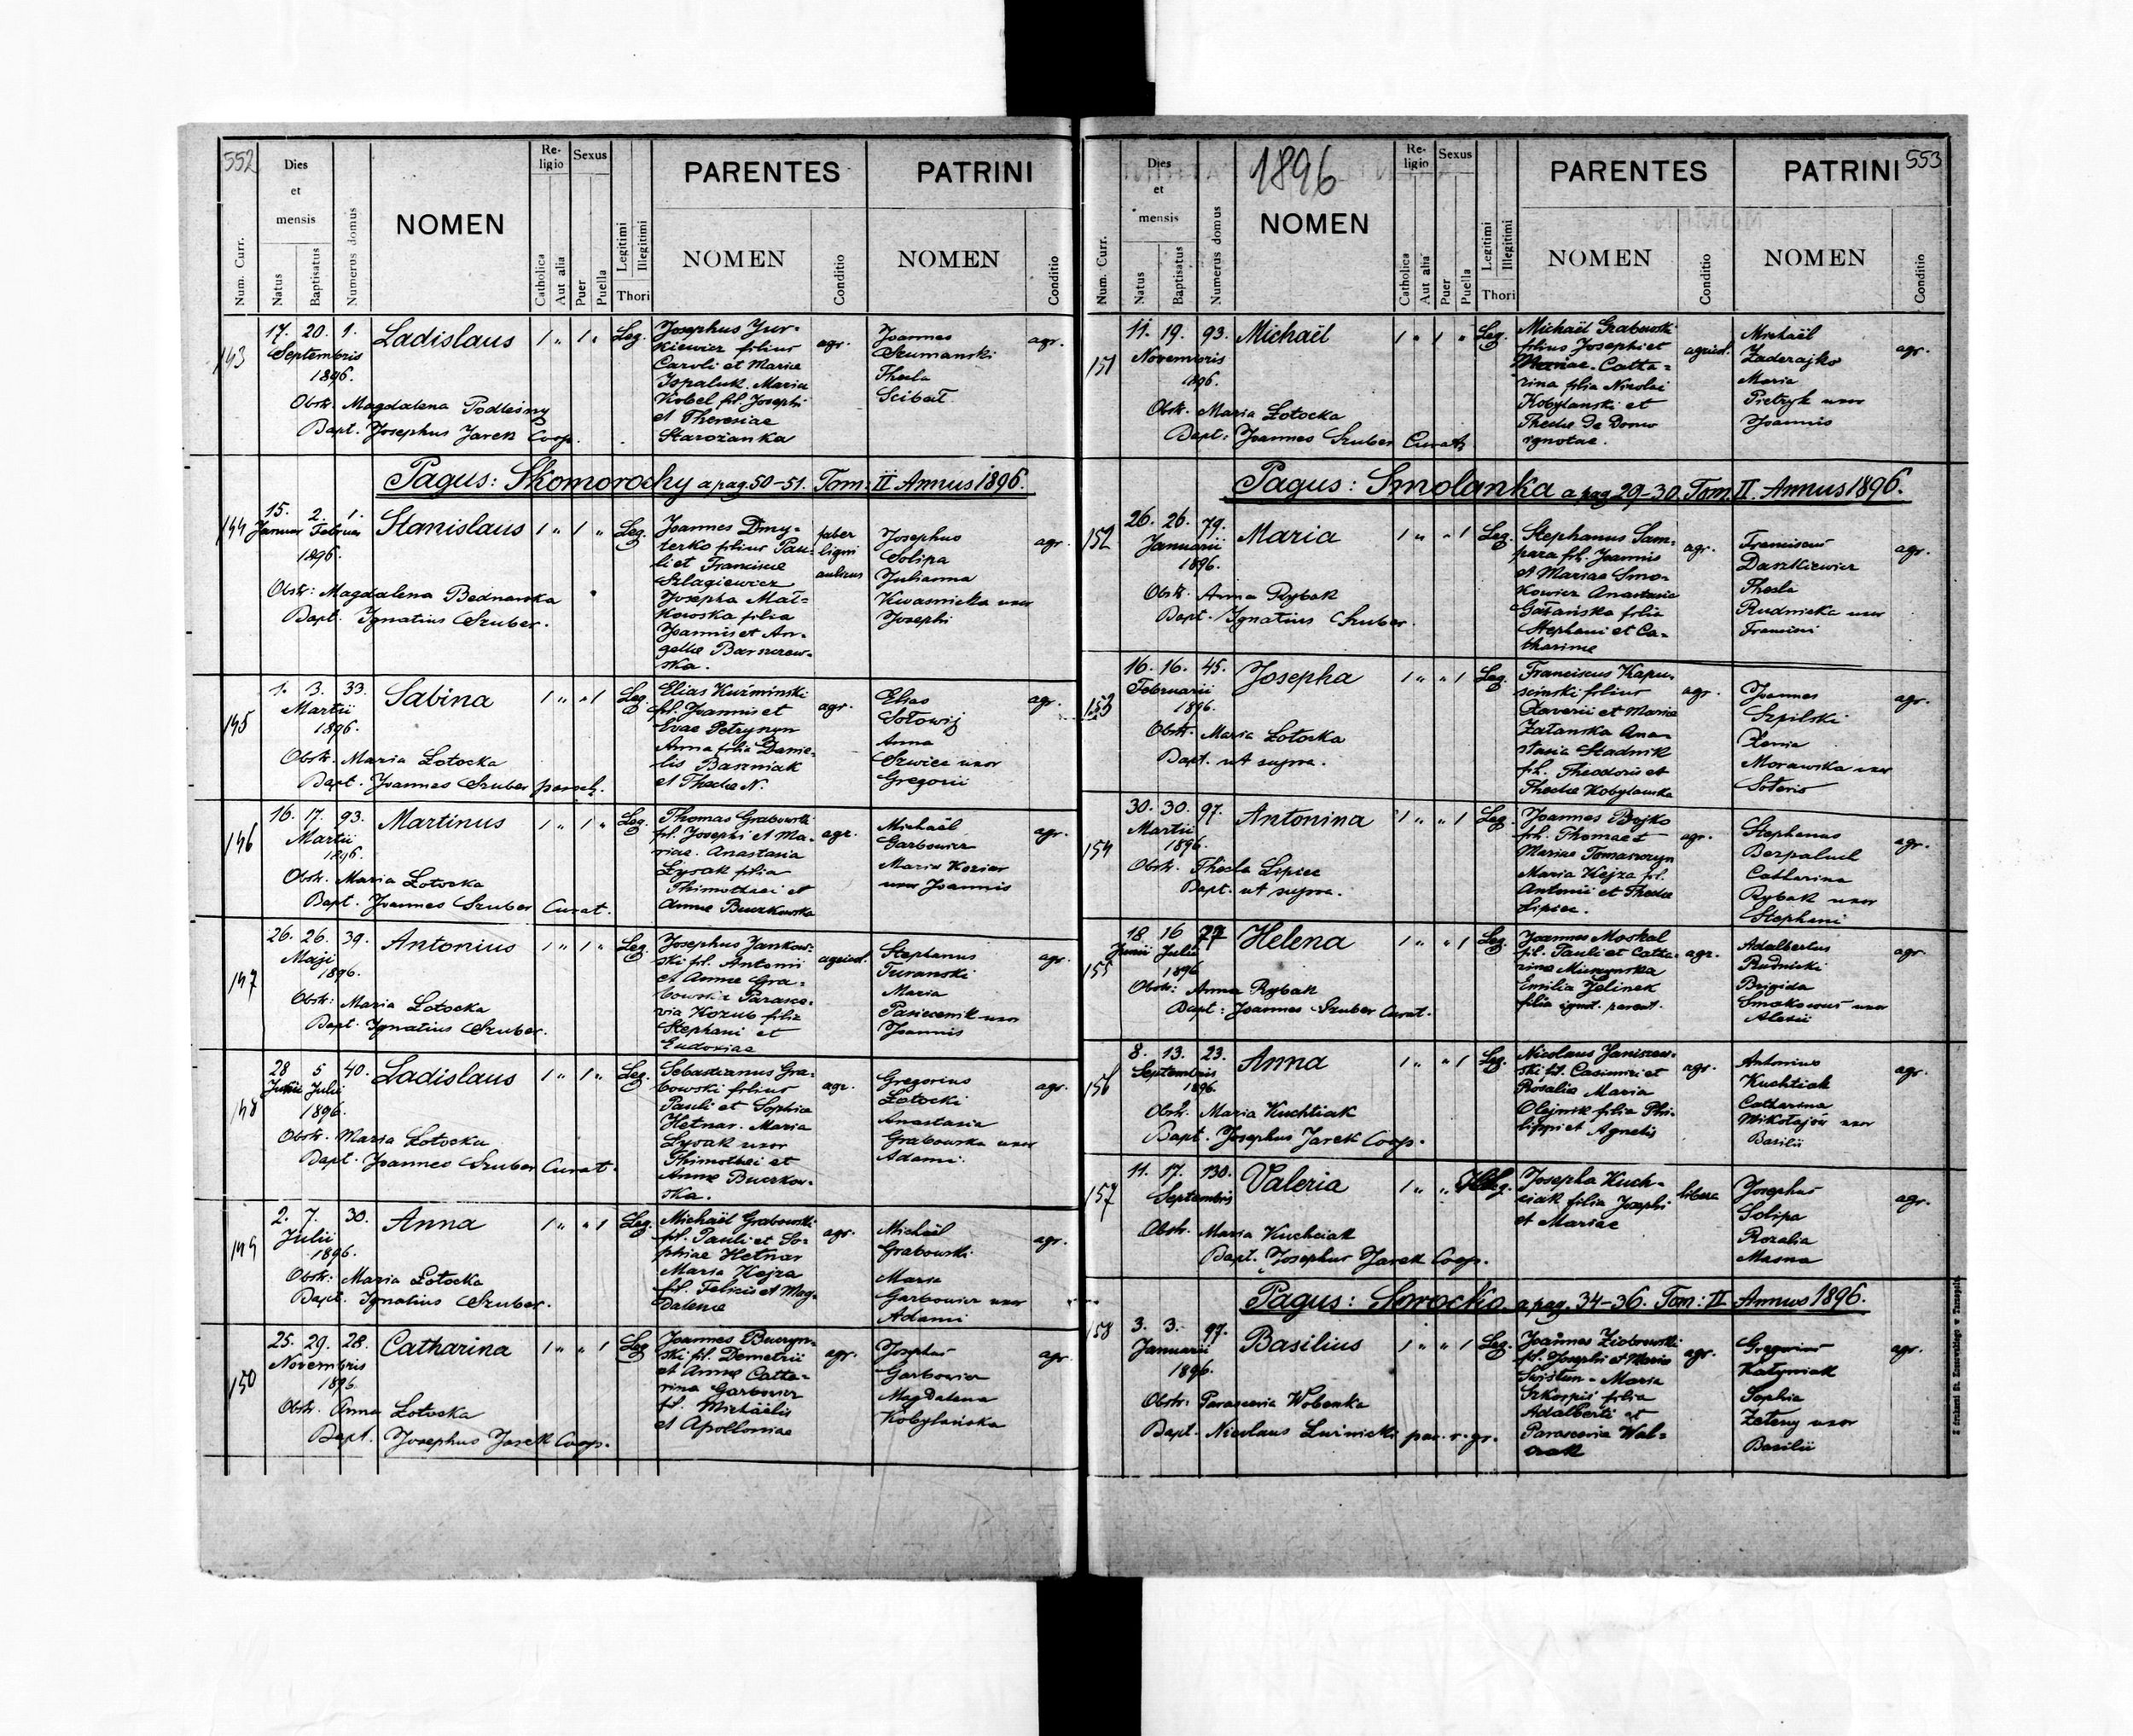 552
Dies et mensis
Natus
Baptisatus
Num. Curr.
Numerus domus
NOMEN
Religio
Catholica
Aut alia
Sexus
Puer
Puella
Legitimi
Illegitimi
Thori
PARENTES
NOMEN
Conditio
PATRINI
NOMEN
Conditio
143
17. 20. 1. Ladislaus 1 „ 1 „ Leg.
Septembris
1896.
Obstr. Magdalena Podleśny
Bapt. Josephus Jarek Coop.
Josephus Jur-
kiewicz filius
Caroli et Mariae
Ispaluk. Maria
Kobel fil. Josephi
et Theresiae
Starożanka
agr.
Joannes
Szumanski
Thecla
Scibał
agr.
Pagus: Skomorochy a pag. 50-51. Tom: II Annus 1896.
144
15. 2. 1. Stanislaus 1 „ 1 „ Leg.
Januar Februar
1896.
Obstr: Magdalena Bednarska
Bapt. Ignatius Szuber.
Joannes Dmy-
terko filius Pau-
li et Franciscae
Szlagiewicz
Josepha Mał-
kowska filia
Joannis et An-
geliae Barszczew-
ska.
faber
ligni
Josephus
Solipa
Julianna
Kwasnicka uxor
Josephi
agr.
145
1. 3. 33. Sabina 1 „ „ 1 Leg.
Martii
1896.
Obstr. Maria Łotocka
Bapt. Joannes Szuber paroch.
Elias Kuźminski
fil. Joannis et
Evae Petrynyn
Anna filia Danie-
lis Baszniak
et Theclae N.
agr.
Elias
Sołowij
Anna
Szwiec uxor
Gregorii
agr.
146
16. 17. 93. Martinus 1 „ 1 „ Leg.
Martii
1896.
Obstr. Maria Łotocka
Bapt. Joannes Szuber Curat.
Thomas Grabowski
fil. Josephi et Ma-
riae. Anastasia
Łysak filia
Thimothaei et
Annae Buczkowska
agr.
Michaël
Garbowicz
Maria Kozier
uxor Joannis
agr.
147
26. 26. 39. Antonius 1 „ 1 „ Leg.
Maji
1896.
Obstr: Maria Łotocka
Bapt. Ignatius Szuber.
Josephus Jankow-
ski fil. Antonii
et Annae Gra-
bowska Parasce-
via Kozub filia
Stephani et
Eudoxiae
agricol.
Stephanus
Turanski
Maria
Pasiecznik uxor
Joannis
agr.
148
28 5 40. Ladislaus 1 „ 1 „ Leg.
Junii Julii
1896.
Obstr. Maria Łotocka
Bapt. Joannes Szuber Curat.
Sebastianus Gra-
bowski filius
Pauli et Sophiae
Hetnar. Maria
Łysak uxor
Thimothei et
Annae Buczkow-
ska.
agr.
Gregorius
Łotocki
Anastasia
Grabowska uxor
Adami.
agr.
149
2. 7. 30. Anna 1 „ „ 1 Leg.
Julii
1896.
Obstr: Maria Łotocka
Bapt. Ignatius Szuber.
Michaël Grabowski
fil. Pauli et So-
phiae Hetnar
Maria Kejza
fil. Felicis et Mag-
dalenae
agr.
Michaël
Grabowski
Maria
Garbowicz uxor
Adami
agr.
150
25. 29. 28. Catharina 1 „ „ 1 Leg
Novembris
1896.
Obstr. Anna Łotocka
Bapt. Josephus Jarek Coop.
Joannes Buczyn-
ski fil. Demetrii
et Annae Catha-
rina Garbowicz
fil. Michaëlis
et Apolloniae
agr.
Josephus
Garbowicz
Magdalena
Kobylańska
agr.
1896
553
Dies et mensis
Natus
Baptisatus
Num. Curr.
Numerus domus
NOMEN
Religio
Catholica
Aut alia
Sexus
Puer
Puella
Legitimi
Illegitimi
Thori
PARENTES
NOMEN
Conditio
PATRINI
NOMEN
Conditio
151
11. 19. 93. Michaël 1 „ 1 „ Leg.
Novembris
1896.
Obstr. Maria Łotocka
Bapt: Joannes Szuber Curat.
Michaël Grabowski
filius Josephi et
Mariae. Catha-
rina filia Nicolai
Kobylanski et
Theclae de domo
ignotae.
agricol.
Michaël
Zaderajko
Maria
Pietryk uxor
Joannis
agr.
Pagus: Smolanka a pag 29-30. Tom II. Annus 1896.
152
26. 26. 79. Maria 1 „ „ 1 Leg.
Januarii
1896.
Obstr. Anna Rybak
Bapt. Ignatius Szuber.
Stephanus Sam-
para fil. Joannis
et Mariae Smo-
kowicz Anastasia
Gałańska filia
Stephani et Ca-
tharinae
agr.
Franciscus
Daszkiewicz
Thecla
Rudnicka uxor
agr.
153
16. 16. 45. Josepha 1 „ „ 1 Leg.
Februarii
1896.
Obstr. Maria Łotocka
Bapt. ut supra.
Franciscus Kapu-
scinski filius
Xaverii et Maria
Załanska Ana-
stasia Stadnik
fil. Theodoris et
Theclae Kobylanska
agr.
Joannes
Szpilski
Xenia
Morawska uxor
agr.
154
30. 30. 97. Antonina 1 „ „ 1 Leg.
Martii
1896.
Obstr. Thecla Lipiec
Bapt. ut supra.
Joannes Bojko
fil. Thomae et
Mariae Tomaszczyn
Maria Kejza fil.
Antonii et Theclae
Lipiec.
agr.
Stephanus
Bezpaluk
Catharina
Rybak uxor
Stephani
agr.
155
18. 16 77 Helena 1 „ „ 1 Leg.
Junii Julii
1896
Obstr: Anna Rybak
Bapt: Joannes Szuber Curat.
Joannes Moskal
fil. Pauli et Catha-
rina Muszynska
Emilia Jelinek
filia ignot. parent.
agr.
Adalbertus
Rudnicki
Brigida
Smakowus uxor
Alexii
agr
156
8. 13. 23. Anna 1 „ „ 1 Leg.
Septembris
1896.
Obstr. Maria Kuchtiak
Bapt. Josephus Jarek Coop.
Nicolaus Janiszew-
ski fil. Casimiri et
Rosalia Maria
Olejnik filia Phi-
lippi et Agnetis
agr.
Antonius
Kuchtiak
Catharina
Mikołajów uxor
Basilii
agr.
157
11. 17. 130. Valeria 1 „ „ Illeg.
Septembris
Obstr. Maria Kuchciak
Bapt. Josephus Jarek Coop.
Josepha Kuch-
ciak filia Josephi
et Mariae
libera
Josephus
Solipa
Rozalia
Masna
agr.
Pagus: Sorocko. a pag. 34-36. Tom: II Annus 1896.
158
3. 3. 97. Basilius 1 „ „ 1 Leg.
Januarii
1896.
Obstr: Parascevia Wobenka
Bapt. Nicolaus Luznicki par. r. gr.
Joannes Ziobrowski
fil. Josephi et Maria
Swistun - Maria
Szkorpis filia
Adalberti et
Parascevia Wal-
czak
agr.
Gregorius
Katyniak
Sophia
Zeteny uxor
Basilii
agr.
Z drukarni St. Kossowskiego w Tarnopolu